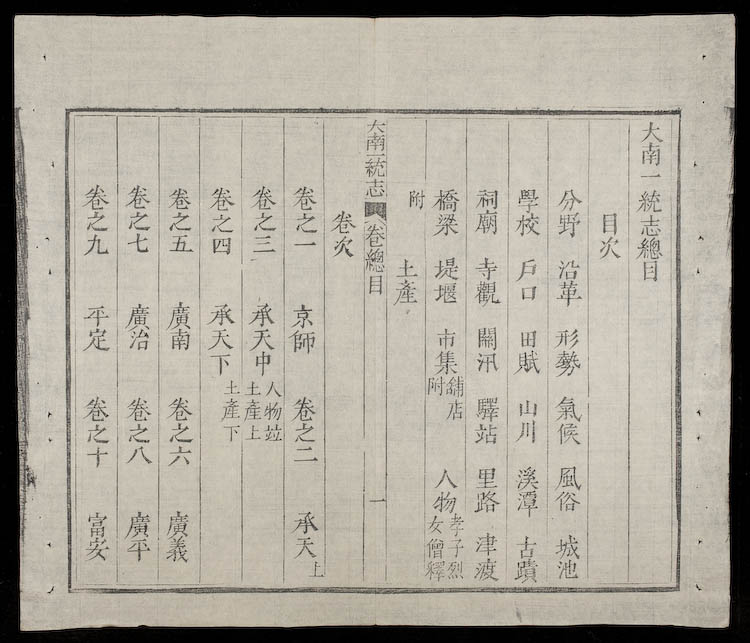 大南一統志總目
目次
分野 沿革 形勢 氣候 風俗 城池
學校 戶口 田賦 山川 溪潭 古蹟
祠廟 寺觀 關汛 驛站 里路 津渡
橋梁 堤堰 市集舖店附 人物孝子烈女僧釋
附 土產
大南一統志 卷總目 一
卷次
卷之一 京師 卷之二 承天上
卷之三 承天中人物並土產上
卷之四 承天下土產下
卷之五 廣南 卷之六 廣義
卷之七 廣治 卷之八 廣平
卷之九 平定 卷之十 富安